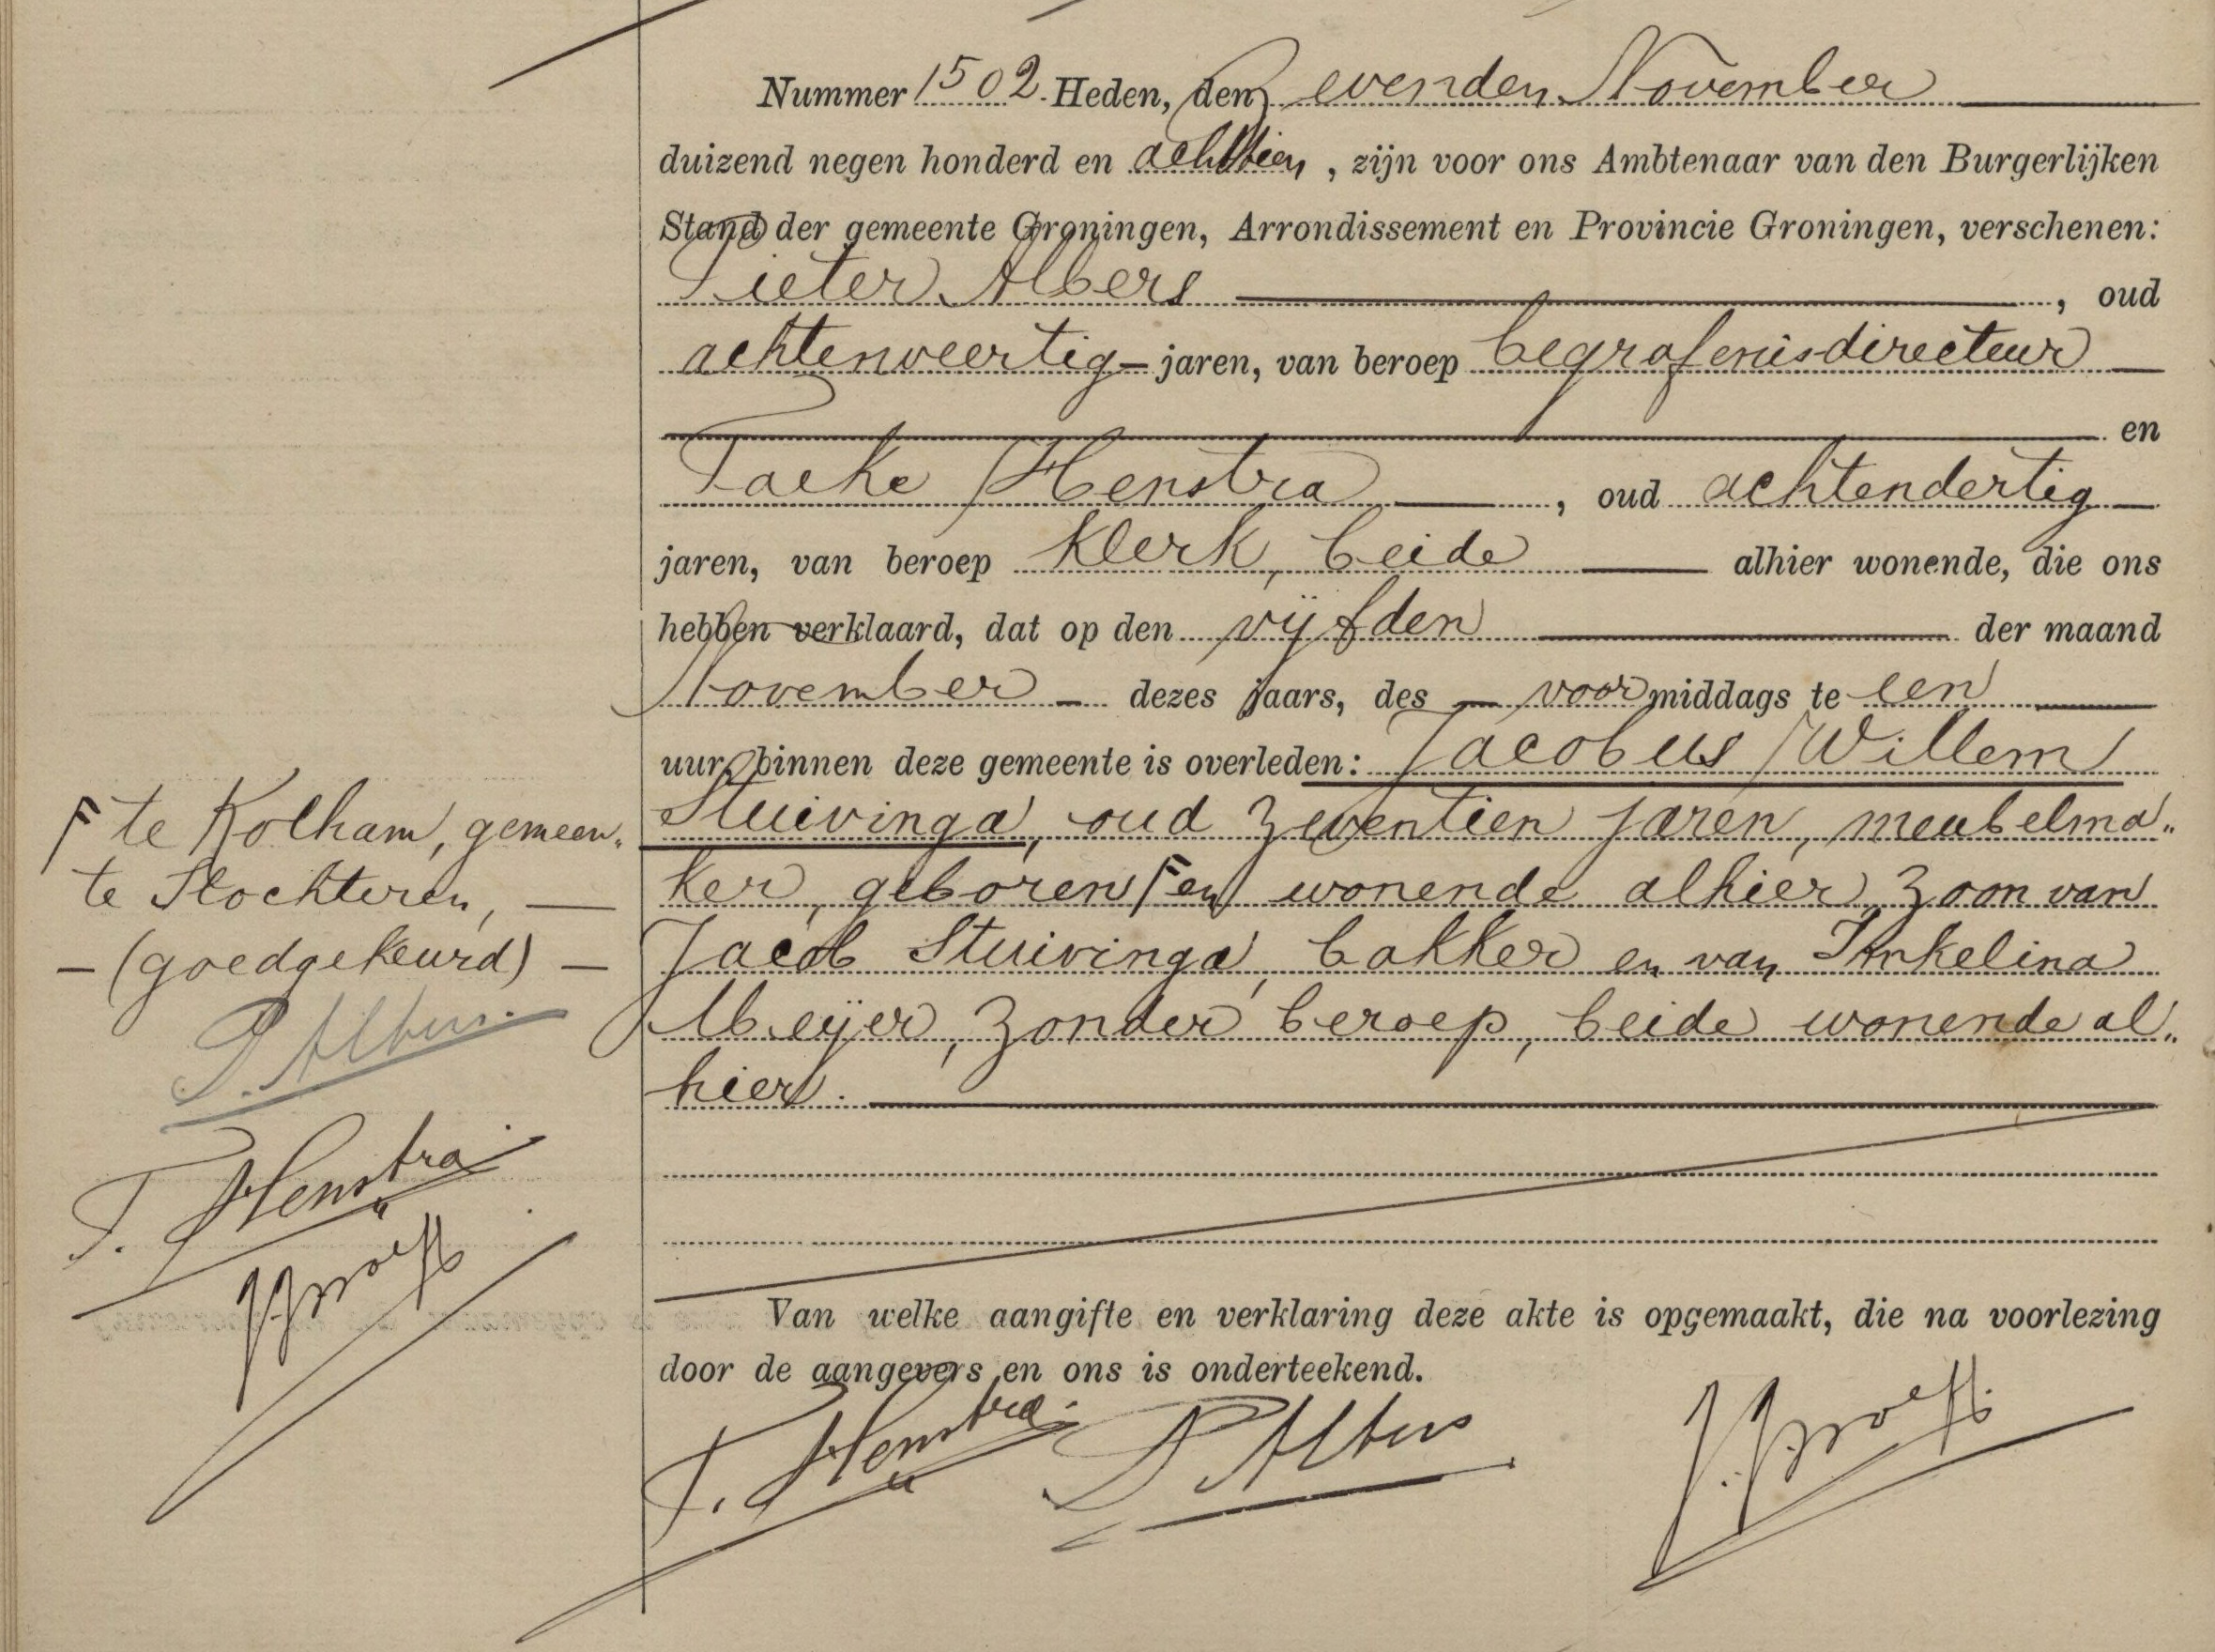 Nummer 1502. Heden, den Zevenden November
duizend negen honderd en achttien, zijn voor ons Ambtenaar van den Burgerlijken
Stand der gemeente Groningen, Arrondissement en Provincie Groningen, verschenen:
Pieter Albers, oud
achtenveertig jaren, van beroep begrafenisdirecteur
en
Taeke Henstra, oud achtendertig
jaren, van beroep klerk, beide alhier wonende, die ons
hebben verklaard, dat op den vijfden der maand
November dezes jaars, des voormiddags te een
uur, binnen deze gemeente is overleden: Jacobus Willem
Stuivinga, oud zeventien jaren, meubelma„
ker, geboren Γ en wonende alhier, zoon van
Jacob Stuivinga, bakker en van Imkelina
Meijer, zonder beroep, beide wonende al„
hier.
Γ te Kolham, gemeen„
te Slochteren,
(goedgekeurd)
P. Albers.
T. Henstra
Van welke aangifte en verklaring deze akte is opgemaakt, die na voorlezing
door de aangevers en ons is onderteekend.
T. Henstra P. Albers